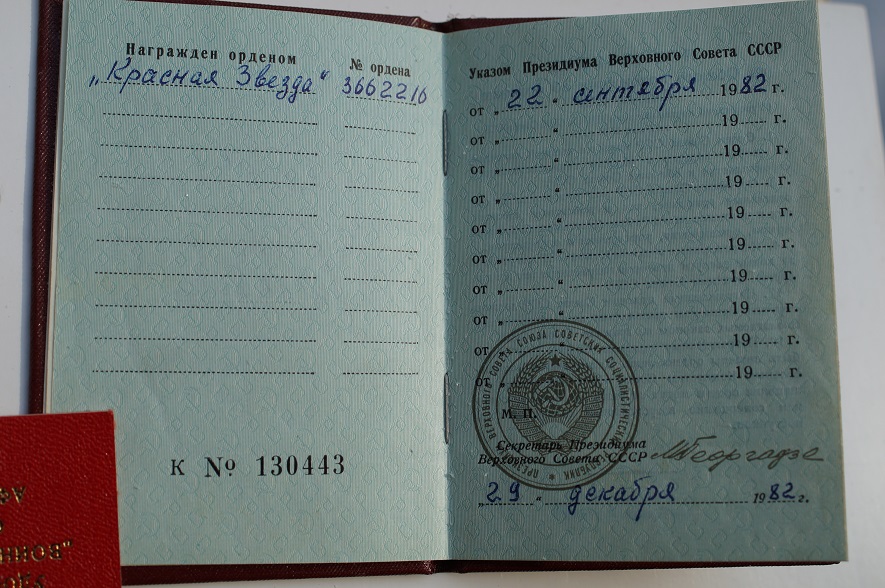 Награжден орденом
№ ордена
„Красная Звезда“
3662216
К № 130443
Указом Президиума Верховного Совета СССР
от „22“ сентября 1982 г.
от „ “ 19 г.
от „ “ 19 г.
от „ “ 19 г.
от „ “ 19 г.
от „ “ 19 г.
от „ “ 19 г.
от „ “ 19 г.
от „ “ 19 г.
от „ “ 19 г.
ВЕРХОВНОГО СОВЕТА СОЮЗА СОВЕТСКИХ СОЦИАЛИСТИЧЕСКИХ РЕСПУБЛИК
М. П.
Секретарь Президиума
Верховного Совета СССР МГеоргадзе
„29“ декабря 1982 г.